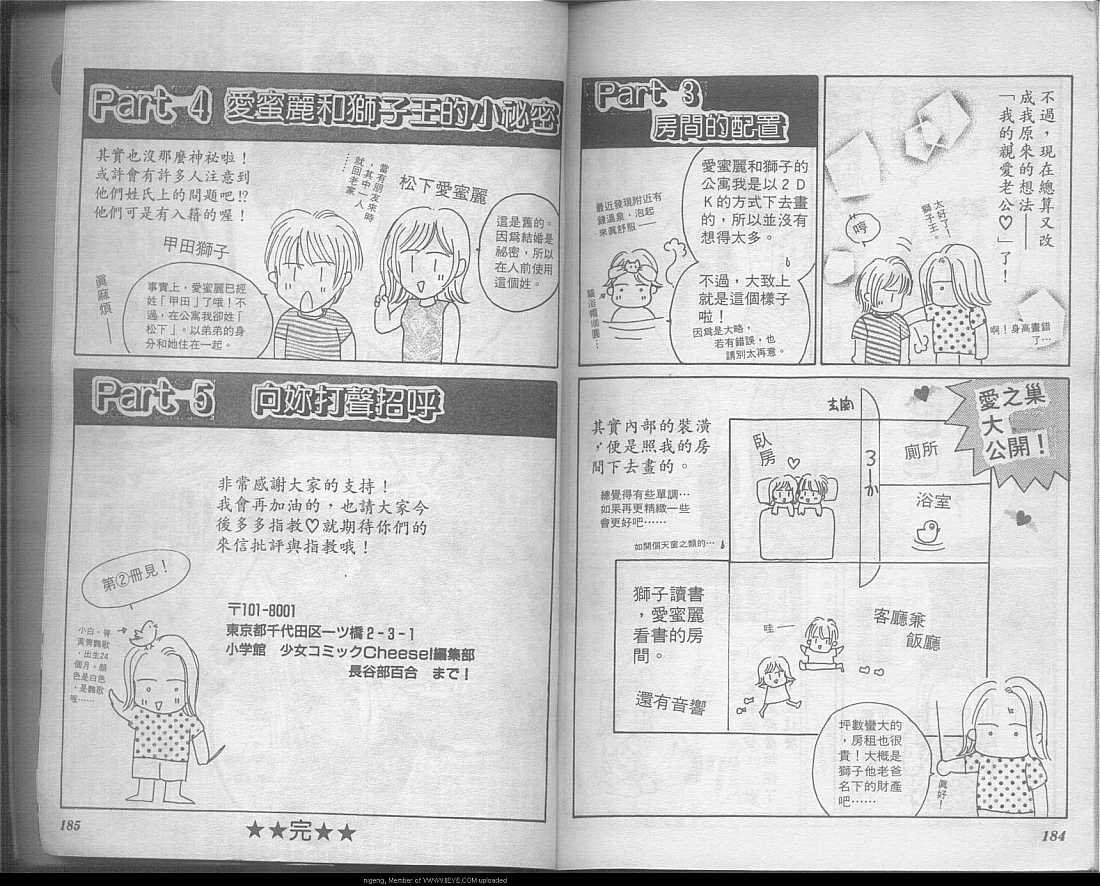 不過，現在總算又改
成我原來的想法——
「我的親愛老公♡」了！
太好了，
獅子王。
哼
啊！身高畫錯
了…
Part 3
房間的配置
愛蜜麗和獅子的
公寓我是以2D
K的方式下去畫
的，所以並沒有
想得太多。
不過，大致上
就是這個樣子
啦！
因爲是大略，
若有錯誤，也
請別太再意。
最近發現附近有
錢溫泉，泡起
來真舒服——
愛之巢
大
公開！
其實內部的裝潢
，便是照我的房
間下去畫的。
總覺得有些單調…
如果再更精緻一些
會更好吧……
如開個天窗之類的…
玄関
臥
房
廁所
浴室
獅子讀書
，愛蜜麗
看書的房
間。
還有音響
哇—
客廳兼
飯廳
坪數蠻大的
，房租也很
貴！大概是
獅子他老爸
名下的財產
吧……
真好！
184
Part 4 愛蜜麗和獅子王的小祕密
其實也沒那麼神祕啦！
或許會有許多人注意到
他們姓氏上的問題吧!?
他們可是有入籍的喔！
當有朋友來時
，其中一人
就回老家
……
松下愛蜜麗
這是舊的。
因爲結婚是
祕密，所以
在人前使用
這個姓。
甲田獅子
事實上，愛蜜麗已經
姓「甲田」了哦！不
過，在公寓我卻姓「
松下」。以弟弟的身
分和她住在一起。
真麻煩——
Part 5 向妳打聲招呼
非常感謝大家的支持！
我會再加油的，也請大家今
後多多指教♡就期待你們的
來信批評與指教哦！
第②冊見！
〒101-8001
東京都千代田区一ツ橋2-3-1
小学館 少女コミックCheese!編集部
長谷部百合 まで！
185
★★完★★
higeng, Member of WWW.IIEYE.COM uploaded